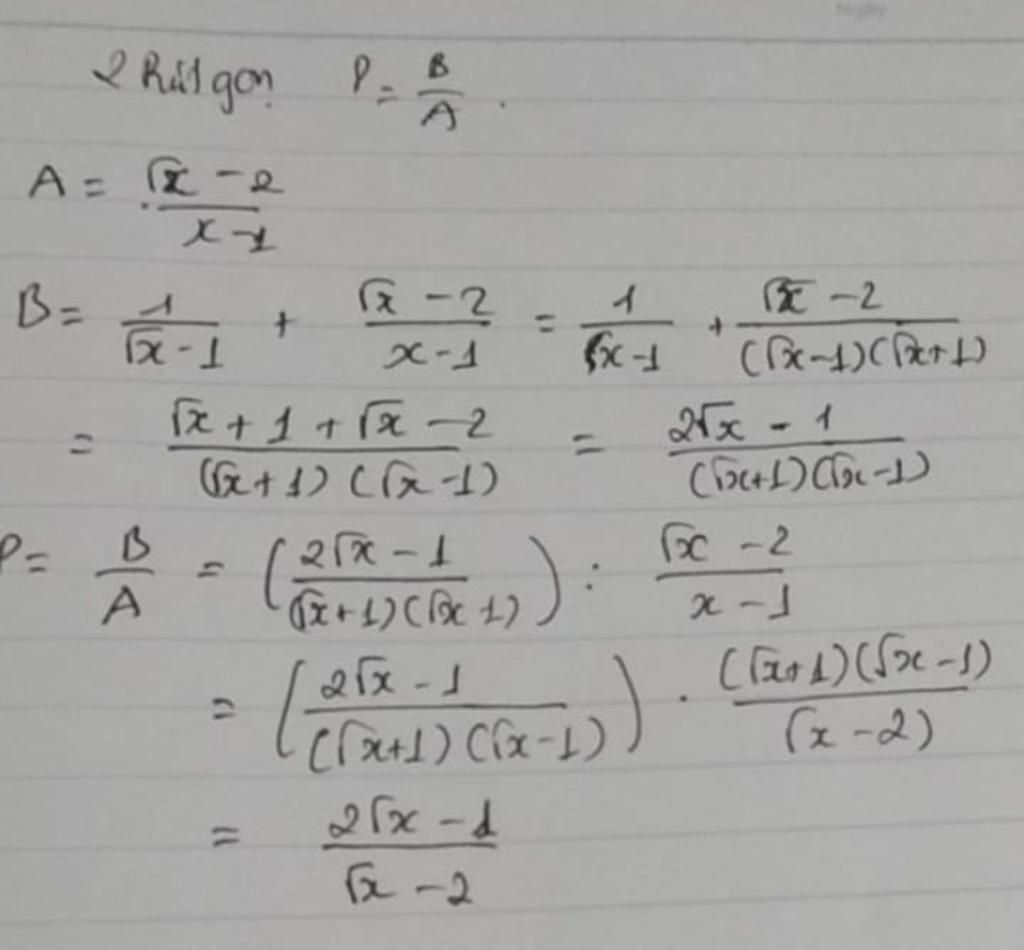 2 Rút gọn P = B/A .
A = (√x - 2)/(x - 1)
B = 1/(√x - 1) + (√x - 2)/(x - 1) = 1/(√x - 1) + (√x - 2)/((√x - 1)(√x + 1))
= (√x + 1 + √x - 2)/((√x + 1)(√x - 1)) = (2√x - 1)/((√x + 1)(√x - 1))
P = B/A = ((2√x - 1)/((√x + 1)(√x 1))) : (√x - 2)/(x - 1)
= ((2√x - 1)/((√x + 1)(√x - 1))) . ((√x + 1)(√x - 1))/(√x - 2)
= (2√x - 1)/(√x - 2)